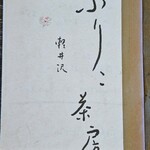 ふりこ茶房
軽井沢